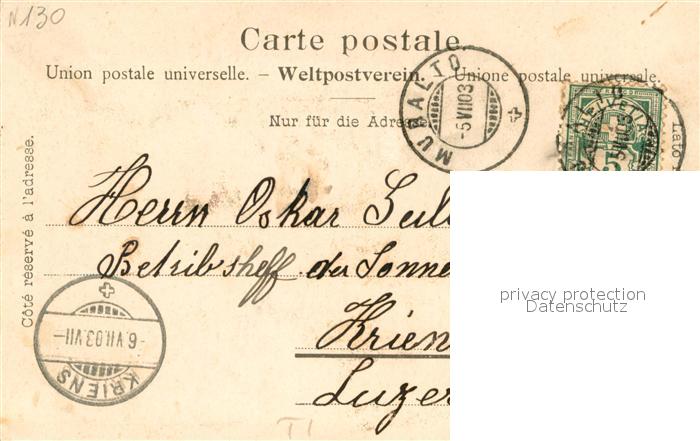 N130
Carte postale.
Union postale universelle. – Weltpostverein. Unione postale universale.
Nur für die Adresse.
MURALTO
-5 VII 03
5 VII 03
5
Lato
Côté reservé à l'adresse.
Herrn Oskar
Betribsheff der Sonne
Krien
Luzer
privacy protection
Datenschutz
-6.VII.03.VII-
KRIENS